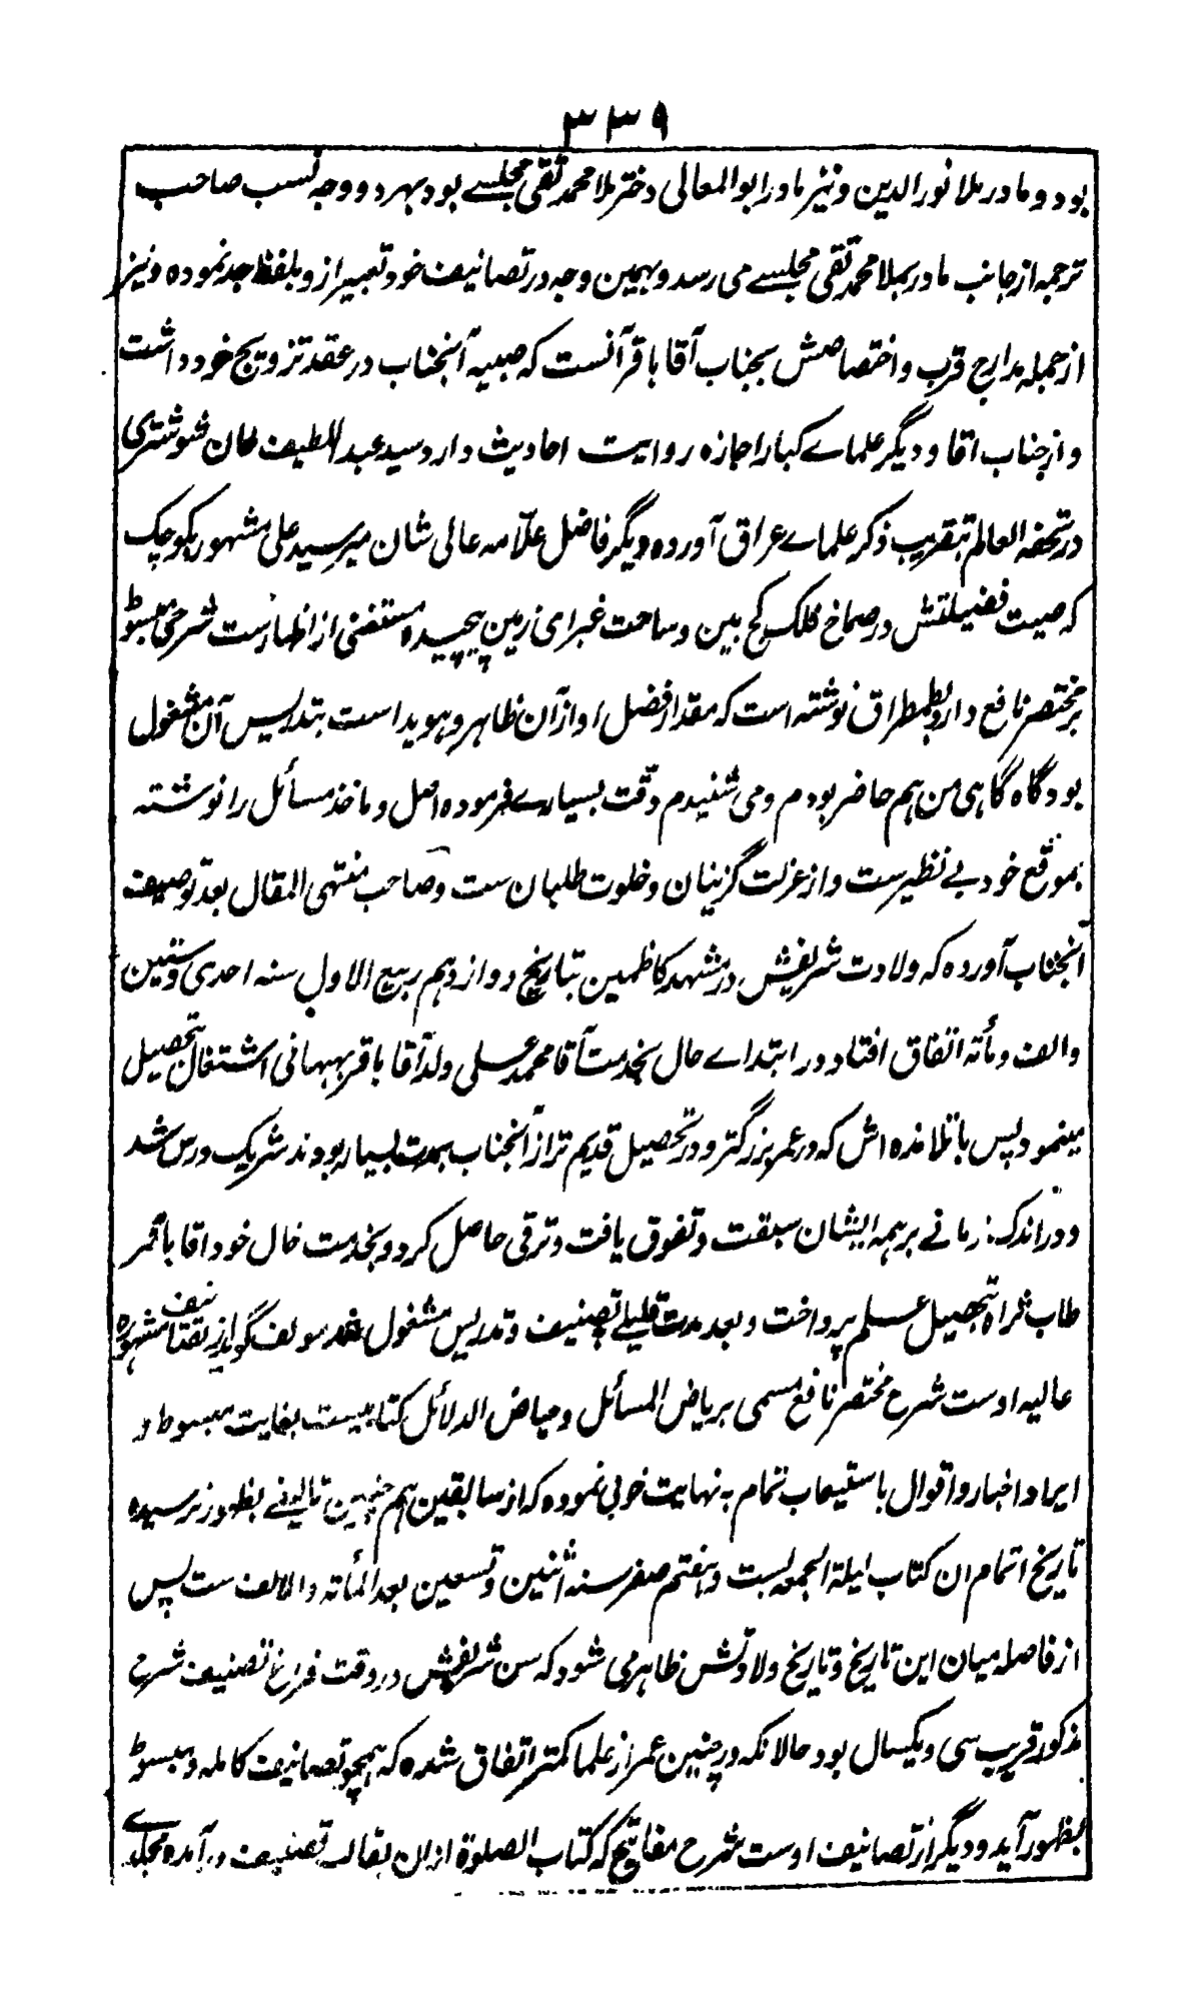 ۳۳۹
بود و مادر ملا نورالدین و نیز مادر ابوالمعالی دختر ملا محمد تقی مجلسے بود بهر دو وجه نسب صاحب
ترجمه از جانب مادر بملا محمد تقی مجلسے می رسد و بهمین وجه در تصانیف خود تعبیر از و بلفظ جد نموده و نیز
از جمله مدارج قرب و اختصاصش بجناب آقا باقر آنست که صبیه آنجناب در عقد تزویج خود داشت
و از جناب اقا و دیگر علماے کبار اجازه روایت احادیث دارد سید عبد اللطیف خان شوشتری
در تحفه العالم بتقریب ذکر علماے عراق آورده دیگر فاضل علّامه عالی شان میر سید علی مشهور بکوچک
که صیت فضیلتش در صماخ فلک کج بین و ساحت غبرای زمین پیچیده مستغنی از اظهارست شرحی مبسوط
بر مختصر نافع دارد بطمطراق نوشته است که مقدار فضل او از آن ظاهر و هویدا است بتدریس آن مشغول
بود گاه گاهی من هم حاضر بودم و می شنیدم دقّت بسیارے فرموده اصل و ماخذ مسائل را نوشته
بموقع خود بے نظیرست و از عزلت گزینان و خلوت طلبان ست و صاحب منتهی المقال بعد توصیف
آنجناب آورده که ولادت شریفش در مشهد کاظمین بتاریخ دوازدهم ربیع الاول سنه احدی و ستین
و الف و مأته اتفاق افتاد و در ابتداے حال بخدمت آقا محمد علی ولد آقا باقر بهبهانی اشتغال تحصیل
مینمود پس با تلامذه اش که در عمر بزرگتر و در تحصیل قدیم تر از آنجناب بمدت بسیار بودند شریک درس شد
و در اندک زمانے بر همه ایشان سبقت و تفوق یافت و ترقی حاصل کرد و بخدمت خال خود اقا باقر
طاب ثراه بتحصیل علم پرداخت و بعد مدت قلیلے بتصنیف و تدریس مشغول شد مولف گوید از تصانیف مشهوره
عالیه اوست شرح مختصر نافع مسمی بریاض المسائل و حیاض الدلائل کتابیست بغایت مبسوط و
ایراد اخبار و اقوال باستیعاب تمام به نهایت خوبی نموده که از سابقین هم چنین تالیفے بظهور نرسیده
تاریخ اتمام ان کتاب لیلة الجمعه بست و هفتم صفر سنه اثنین و تسعین بعد المأته و الالف ست پس
از فاصله میان این تاریخ و تاریخ ولادتش ظاهر می شود که سن شریفش در وقت فراغ تصنیف شرح
مذکور قریب سی و یکسال بود حالانکه در چنین عمر از علما کمتر اتفاق شده که همچو تصانیف کامله و مبسوط
بظهور آید و دیگر از تصانیف اوست شرح مفاتیح که کتاب الصلوة ازان بقالب تصنیف در آمده مجلدے